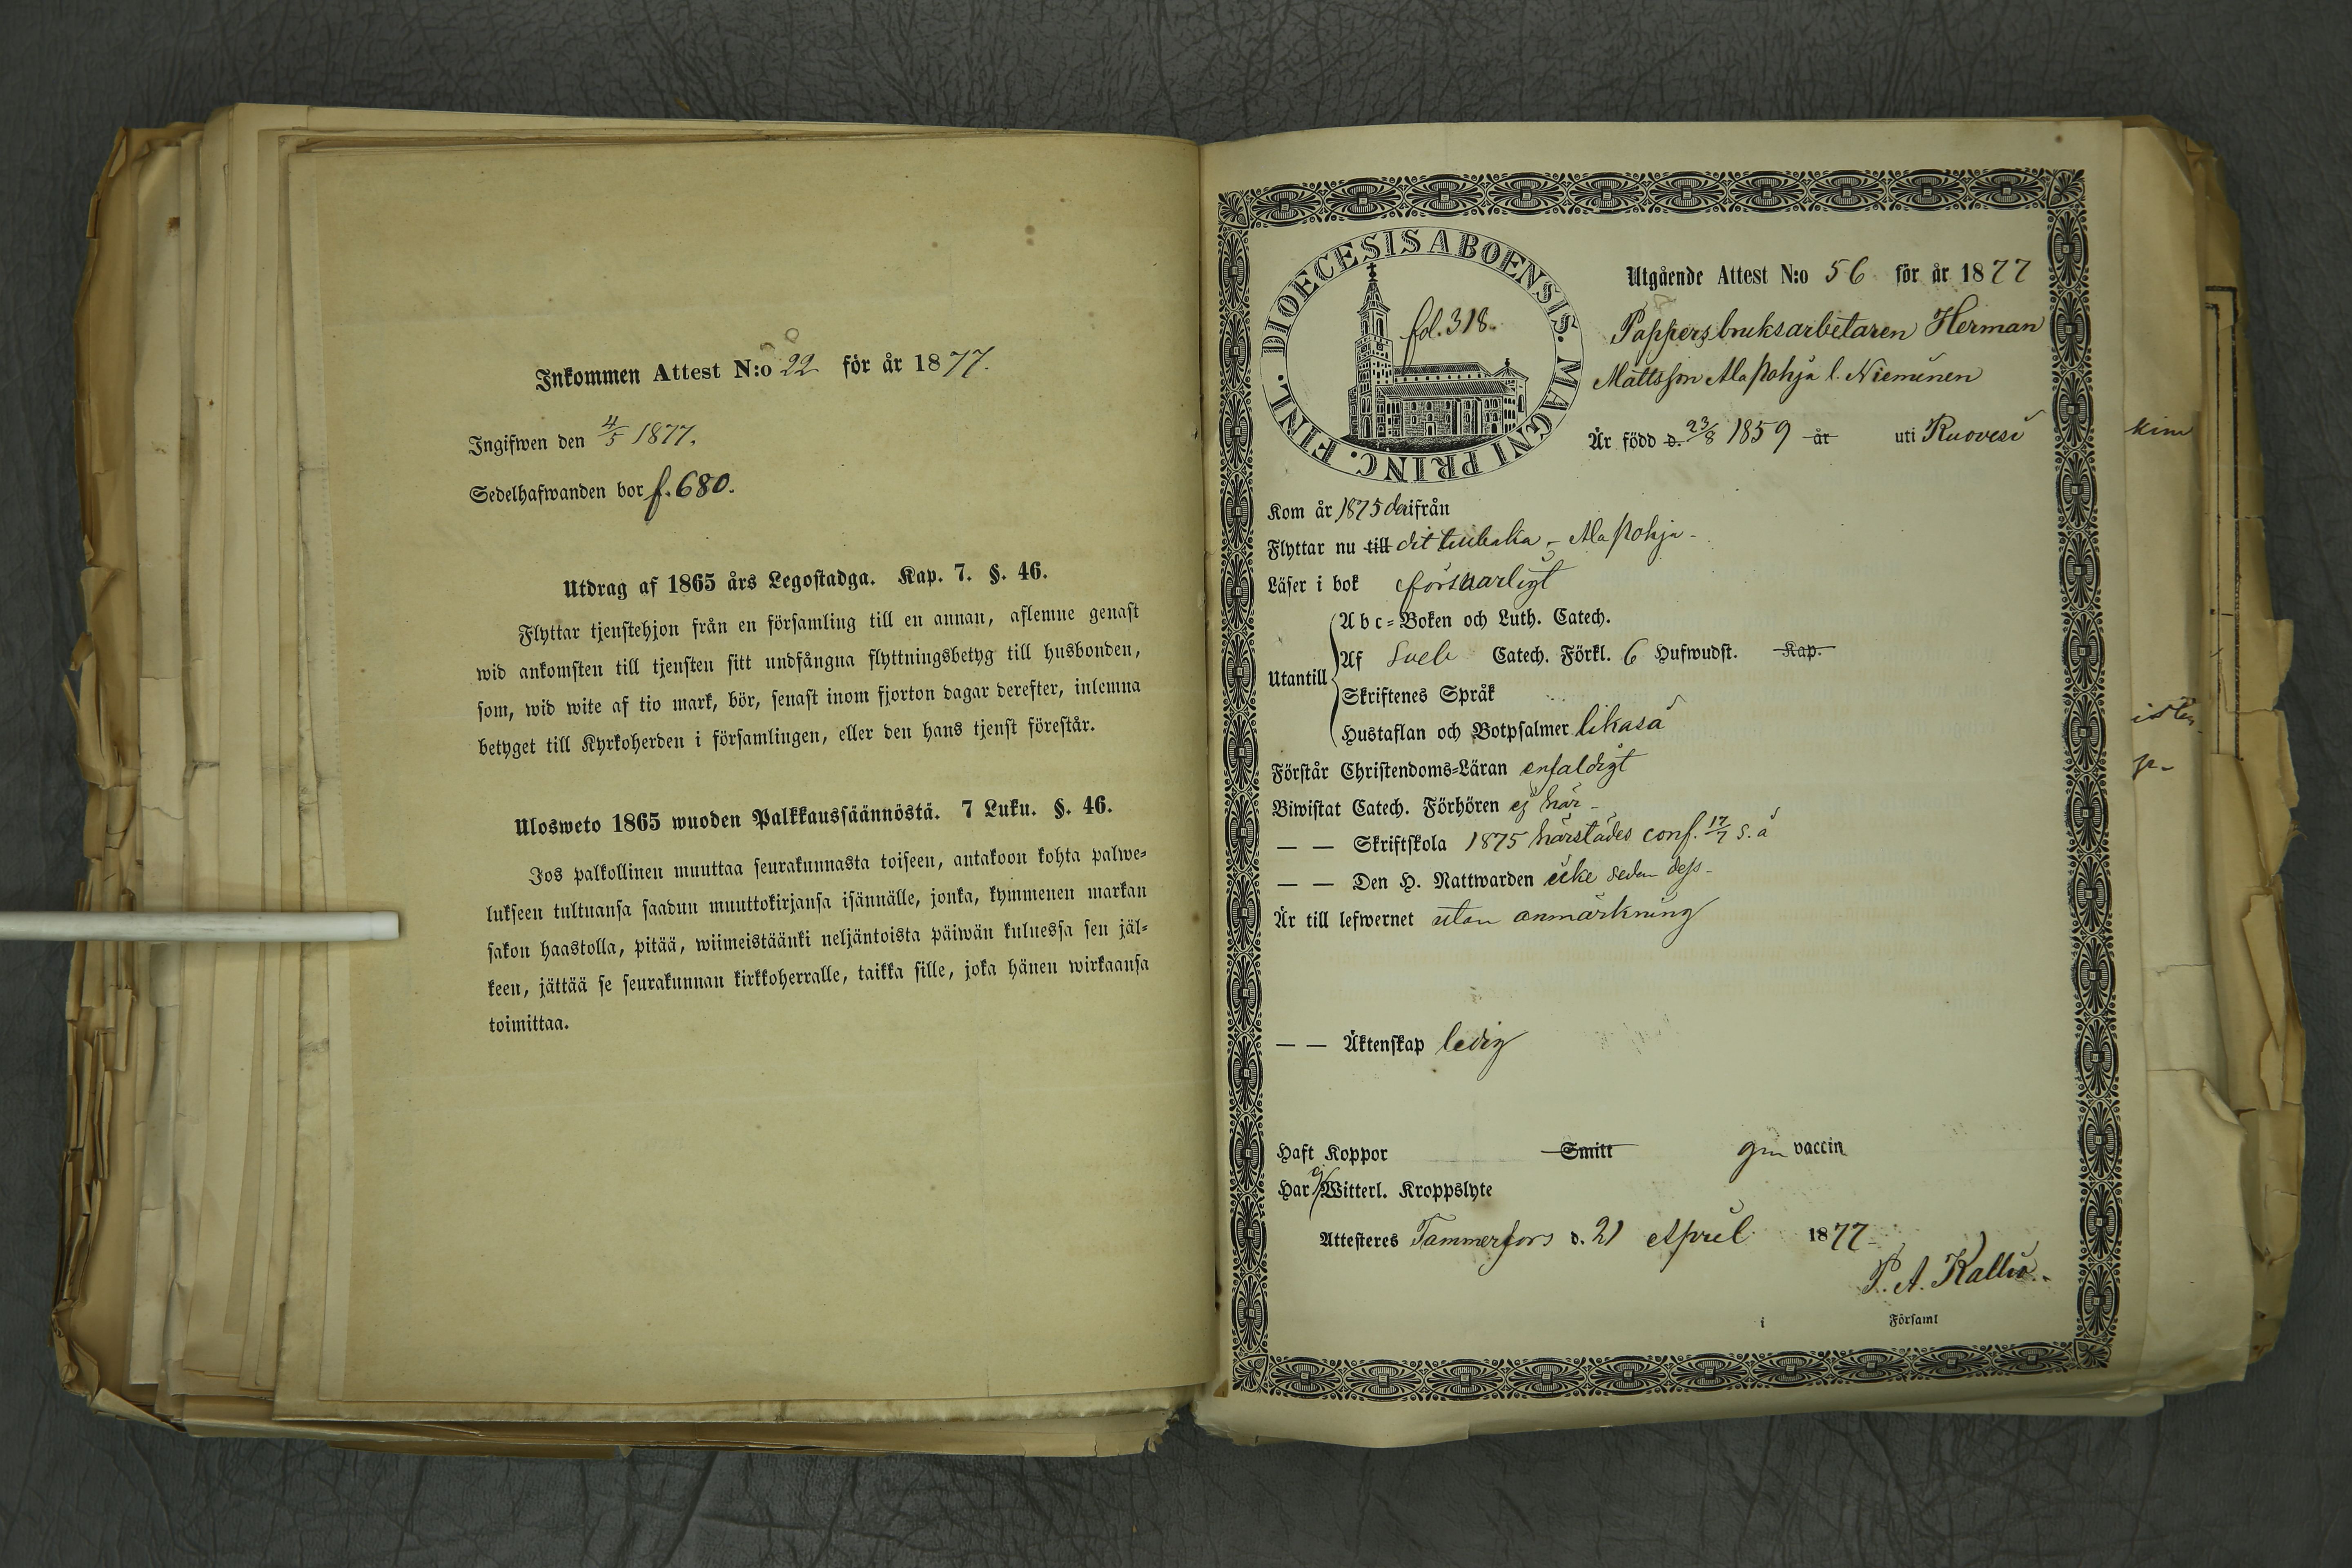 Inkommen Attest N:o 22 för år 1877.
Ingifwen den 4/5 1877.
Sedelhafwanden bor f. 680.
Utdrag af 1865 års Legostadga. Kap. 7. §. 46.
Flyttar tjenstehjon från en församling till en annan, aflemne genast
wid ankomsten till tjensten sitt undfångna flyttningsbetyg till husbonden,
som, wid wite af tio mark, bör, senast inom fjorton dagar derefter, inlemna
betyget till Kyrkoherden i församlingen, eller den hans tjenst förestår.
Ulosweto 1865 wuoden Palkkaussäännöstä. 7 Luku. §. 46.
Jos palkollinen muuttaa seurakunnasta toiseen, antakoon kohta palwe-
lukseen tultuansa saadun muuttokirjansa isännälle, jonka, kymmenen markan
sakon haastolla, pitää, wiimeistäänki neljäntoista päiwän kuluessa sen jäl-
keen, jättää se seurakunnan kirkkoherralle, taikka sille, joka hänen wirkaansa
toimittaa.
DIOECESIS ABOENSIS. MAGNI PRINC. FINL.
fol. 318.
Utgående Attest N:o 56 för år 1877
Pappersbruksarbetaren Herman
Mattsson Ala Pohja l. Nieminen
Är född d. 23/8 1859 år uti Ruovesi
Kom år 1875 därifrån
Flyttar nu till dit tillbaka - Ala Pohja -
Läser i bok försvarligt
Utantill
Abc-Boken och Luth. Catech.
Af Sveb Catech. Förkl. 6 Hufwudst. Kap.
Skriftenes Språk
Hustaflan och Botpsalmer likaså
Förstår Christendoms-Läran enfaldigt
Biwistat Catech. Förhören ej här -
— — Skriftskola 1875 härstädes conf. 17/7 s. å
— — Den H. Nattwarden icke sedan dess -
Är till lefwernet utan anmärkning
— — Äktenskap ledig
Haft Koppor Smitt gm vaccin
Har ej Witterl. Kroppslyte
Attesteres Tammerfors d. 21 April 1877 -
P. A. Kallio.
i Församl